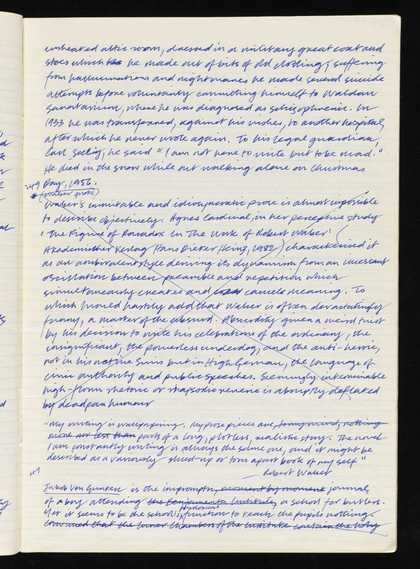 unheated attic room, dressed in a military great coat and
shoes which he made out of bits of old clothing, suffering
from hallucinations and nightmares he made several suicide
attempts before voluntarily committing himself to Waldau
Sanatorium, where he was diagnosed as schizophrenic. In
1933 he was transferred, against his wishes, to another hospital,
after which he never wrote again. To his legal guardian,
Carl Seelig, he said "I am not here to write but to be mad."
He died in the snow while out walking alone on Christmas
Day, 1956.
Walser's inimitable and idiosyncratic prose is almost impossible
to describe objectively. Agnes Cardinal, in her perceptive study
'The Figure of Paradox in The Work of Robert Walser' (
Akademischer Verlag Hans Dieter Heinz, 1982) characterised it
as an ambivalent style deriving its dynamism from an incessant
oscillation between preamble and repetition which
simultaneously creates and cancels meaning. To
which I would hastily add that Walser is often devastatingly
funny, a master of the absurd. Absurdity given a weird twist
by his decision to write his celebrations of the ordinary, the
insignificant, the powerless underdog, and the anti-heroic,
not in his native Swiss but in High German, the language of
civic authority and public speeches. Seemingly interminable
high-flown rhetoric or rhapsodic reverie is abruptly deflated
by deadpan humour
"My writing is wallpapering. My prose pieces are,
parts of a long, plotless, realistic story. The novel
I am constantly writing is always the same one, and it might be
described as a variously sliced-up or torn apart book of myself"
Robert Walser
Jakob Von Gunten is the impromptu, moment by moment journal
of a boy attending the Benjamenta Institute, a school for butlers.
Yet it seems to be the school's function to teach the pupils nothing.
Convinced that the inner chambers of the institute contain the holy